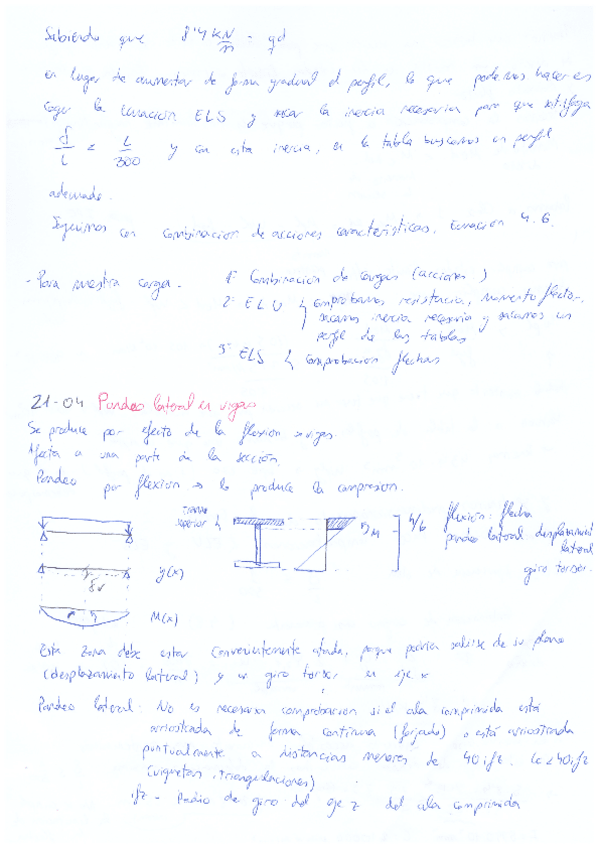 Sabiendo que 8'4 kN/m - qd
en lugar de aumentar de forma gradual el perfil, lo que podemos hacer es
coger la ecuación ELS y sacar la inercia necesaria para que satisfaga
f/L = L/300 y con esta inercia, en la tabla buscamos un perfil
adecuado.
Seguimos con combinacion de acciones características, Ecuación 4.6.
- Para nuestra carga - 1º Combinación de cargas (acciones)
2º ELU comprobamos resistencia, momento flector,
sacamos inercia necesaria y sacamos un
perfil de las tablas
3º ELS comprobacion flechas
21-04 Pandeo lateral en vigas
Se produce por efecto de la flexion vigas.
Afecta a una parte de la sección.
Pandeo por flexion → lo produce la compresion.
superior
h/6
flexión: flecha
pandeo lateral desplazamient
lateral
giro torsor.
y(x)
M(x)
Esta zona debe estar convenientemente atada, porque podria salirse de su plano
(desplazamiento lateral) y un giro torsor en eje x
Pandeo lateral: No es necesaria comprobacion si el ala comprimida está
arriostrada de forma continua (forjado) o está arriostrada
puntualmente a distancias menores de 40 ifz. Lc < 40 ifz
(viguetas, triangulaciones)
ifz - Radio de giro del eje z del ala comprimida